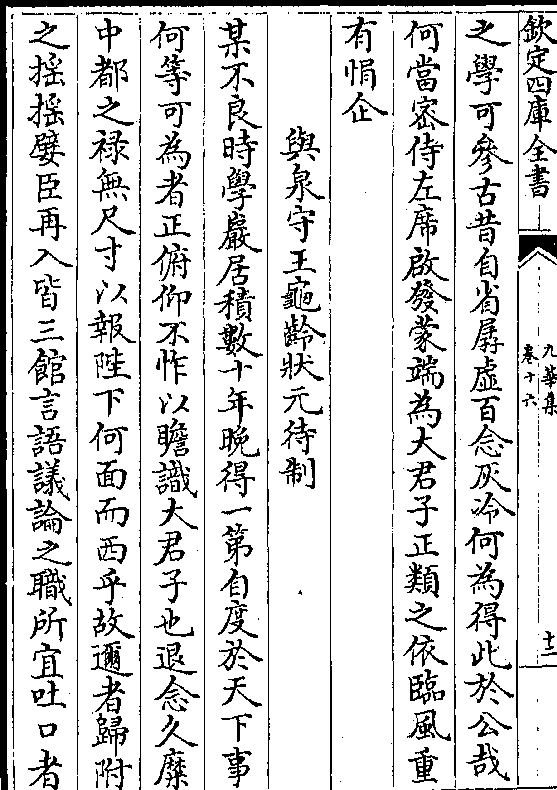 欽定四庫全書
九華集
卷十六
十二
之學可參古昔自省孱虛百念灰冷何為得此於公哉
何當密侍左席啟發蒙端為大君子正類之依臨風重
有悁企
與泉守王龜齡狀元待制
某不良時學巖居積數十年晩得一第自度於天下事
何等可為者正俯仰不怍以瞻識大君子也退念久糜
中都之禄無尺寸以報陛下何面而西乎故邇者歸附
之揺揺嬖臣再入皆三館言語議論之職所宜吐口者